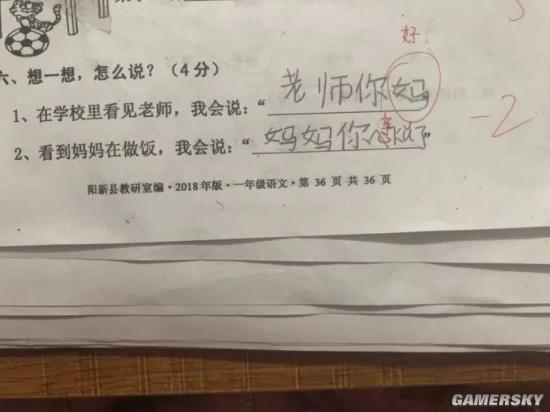 好
六、想一想，怎么说？（4分）
1、在学校里看见老师，我会说：“老师你妈”
-2
2、看到妈妈在做饭，我会说：“妈妈你辛苦了”
阳新县教研室编·2018年版·一年级语文·第 36 页 共 36 页
GAMERSKY